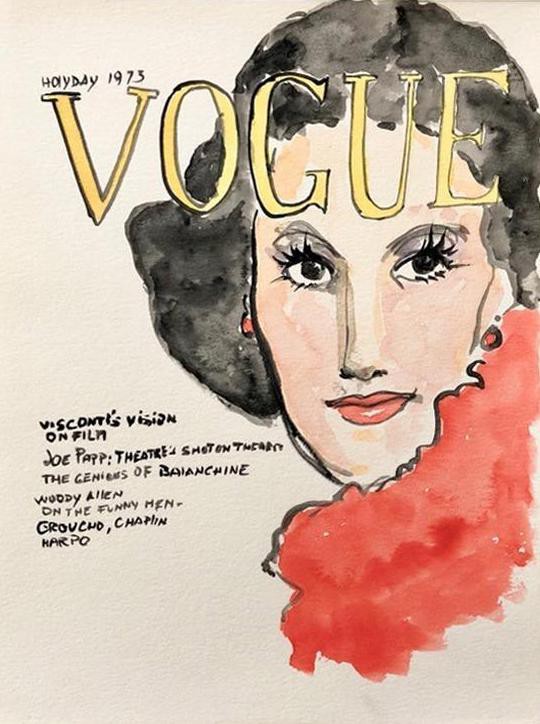 HOlYDAY 1973
VOGUE
VISCONTI'S VISION
ON FILM
JOE PAPP: THEATRE'S SHOT ON THEATRE
THE GENIOUS OF BAlANCHINE
WOODY AllEN
ON THE FUNNY MEN-
GROUCHO, CHAPlIN
HARPO